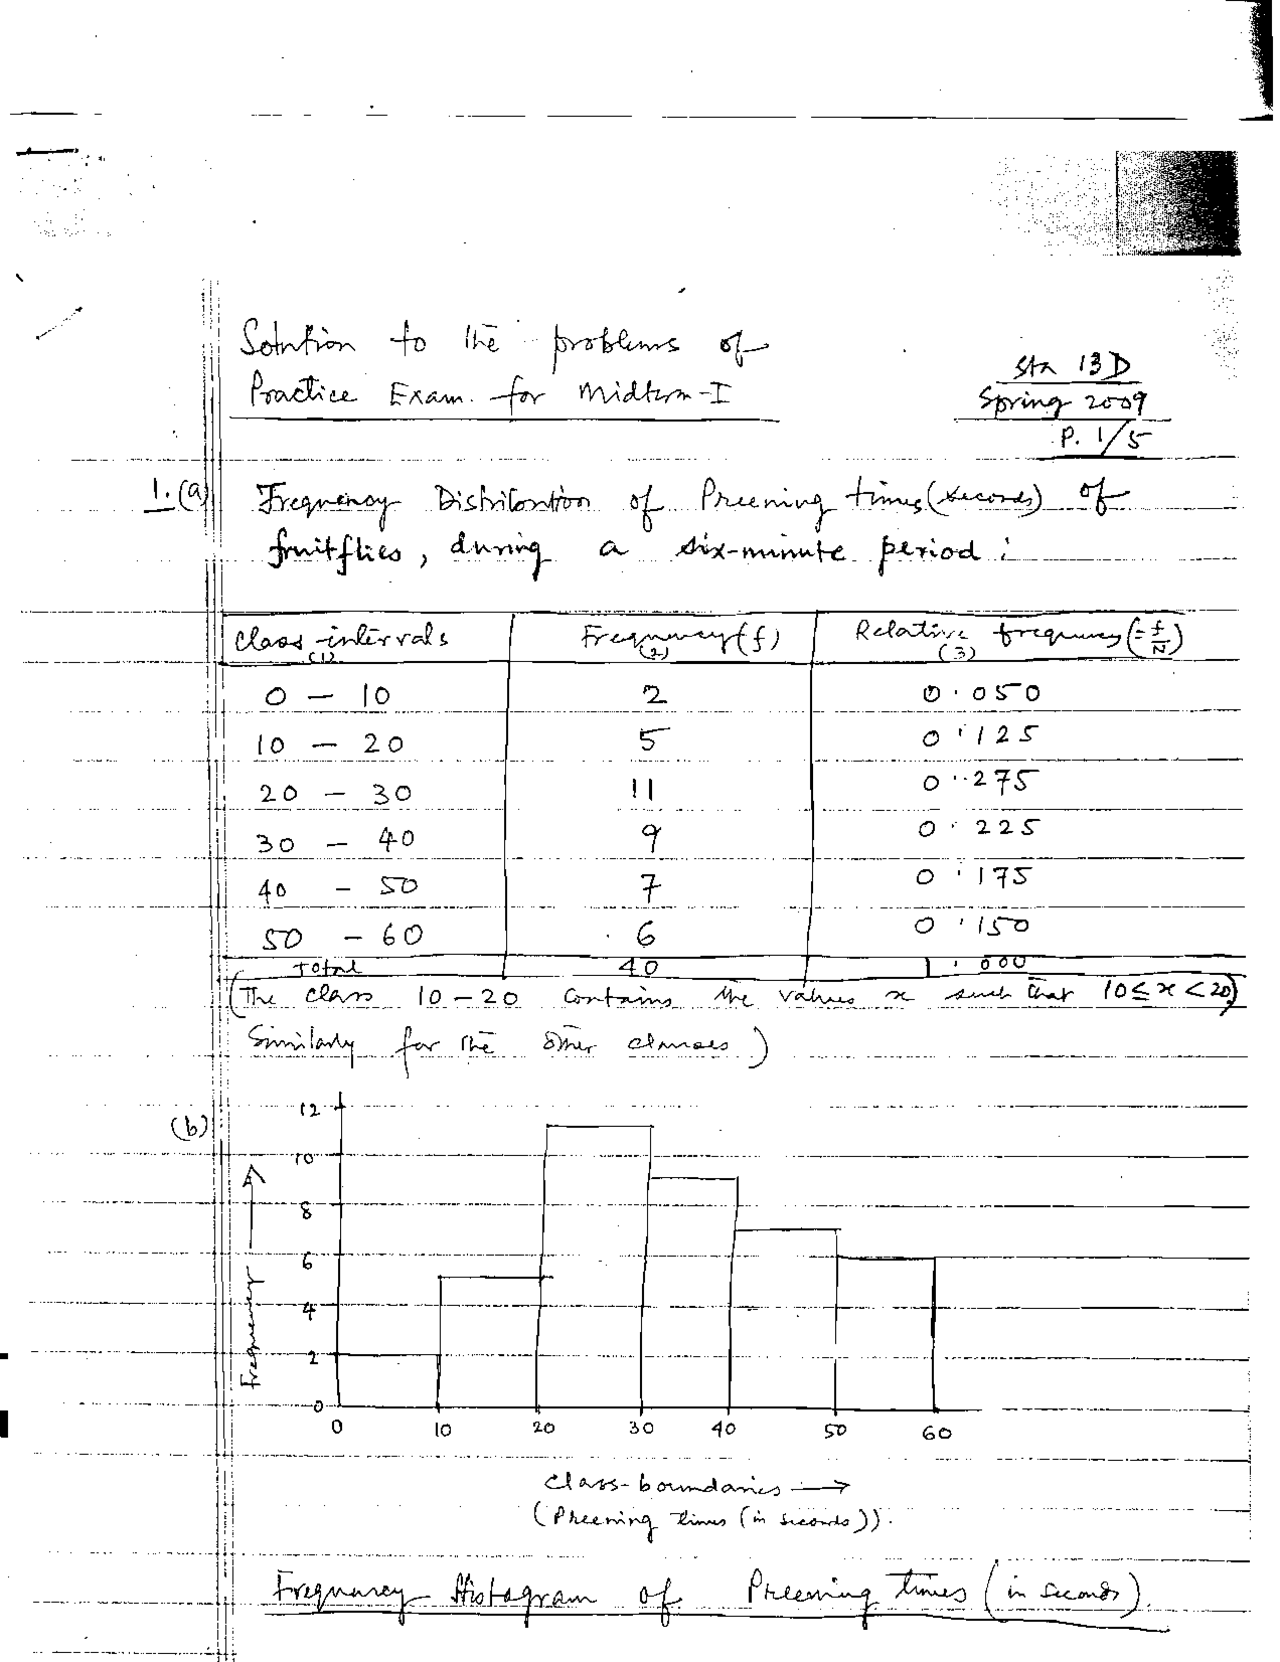 Solution to the problems of
Practice Exam. for Midterm-I
Sta 13D
Spring 2009
P. 1/5
1. (a) Frequency Distribution of Preening times (seconds) of
fruitflies, during a six-minute period:
Class-intervals (1) Frequency (f) (2) Relative frequency (= f/N) (3)
0 – 10 2 0.050
10 – 20 5 0.125
20 – 30 11 0.275
30 – 40 9 0.225
40 – 50 7 0.175
50 – 60 6 0.150
Total 40 1.000
(The class 10–20 contains the values x such that 10 ≤ x < 20)
Similarly for the other classes.)
(b)
12
10
8
6
4
2
0
Frequency →
0 10 20 30 40 50 60
Class-boundaries →
(Preening times (in seconds)).
Frequency Histogram of Preening times (in seconds).